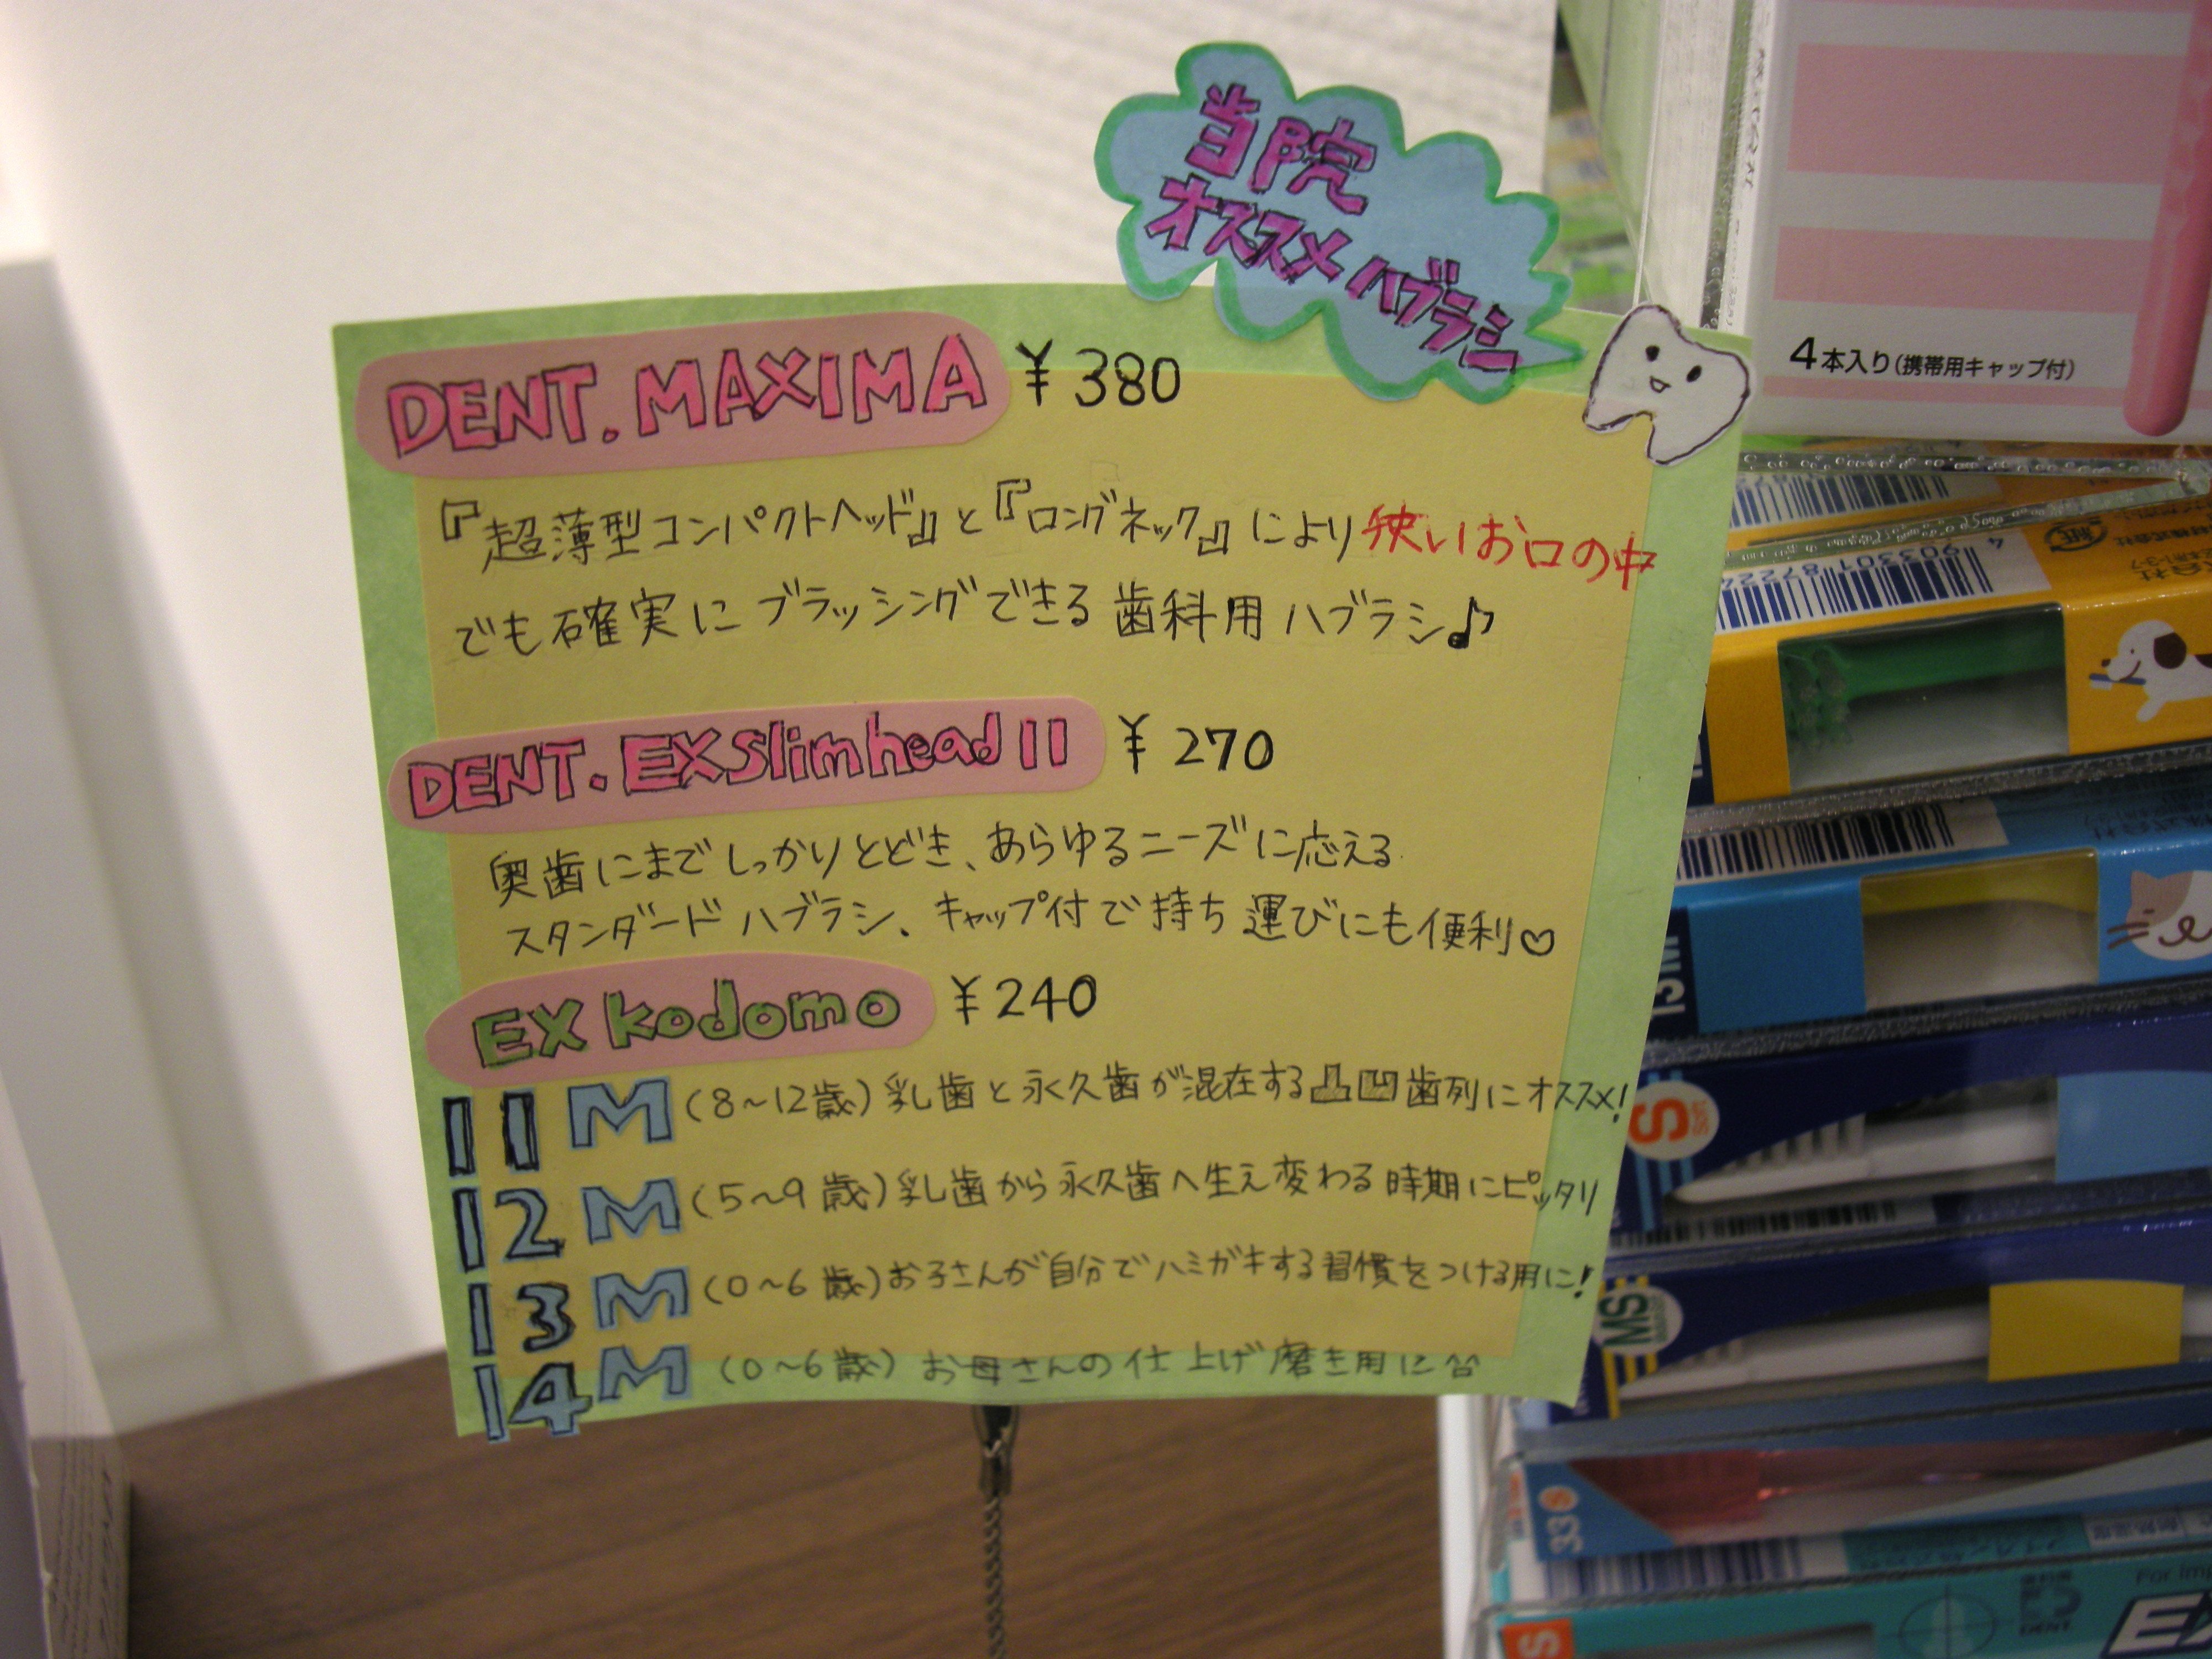 当院
オススメハブラシ
DENT.MAXIMA ¥380
『超薄型コンパクトヘッド』と『ロングネック』により狭いお口の中
でも確実にブラッシングできる歯科用ハブラシ♪
DENT.EXslimhead II ¥270
奥歯にまでしっかりとどき、あらゆるニーズに応える
スタンダードハブラシ、キャップ付で持ち運びにも便利♡
EX kodomo ¥240
11M (8~12歳) 乳歯と永久歯が混在する凸凹歯列にオススメ!
12M (5~9歳) 乳歯から永久歯へ生え変わる時期にピッタリ
13M (0~6歳) お子さんが自分でハミガキする習慣をつける用に!
14M (0~6歳) お母さんの仕上げ磨き用に
4本入り(携帯用キャップ付)
13M
S
MS
33S
S
EX